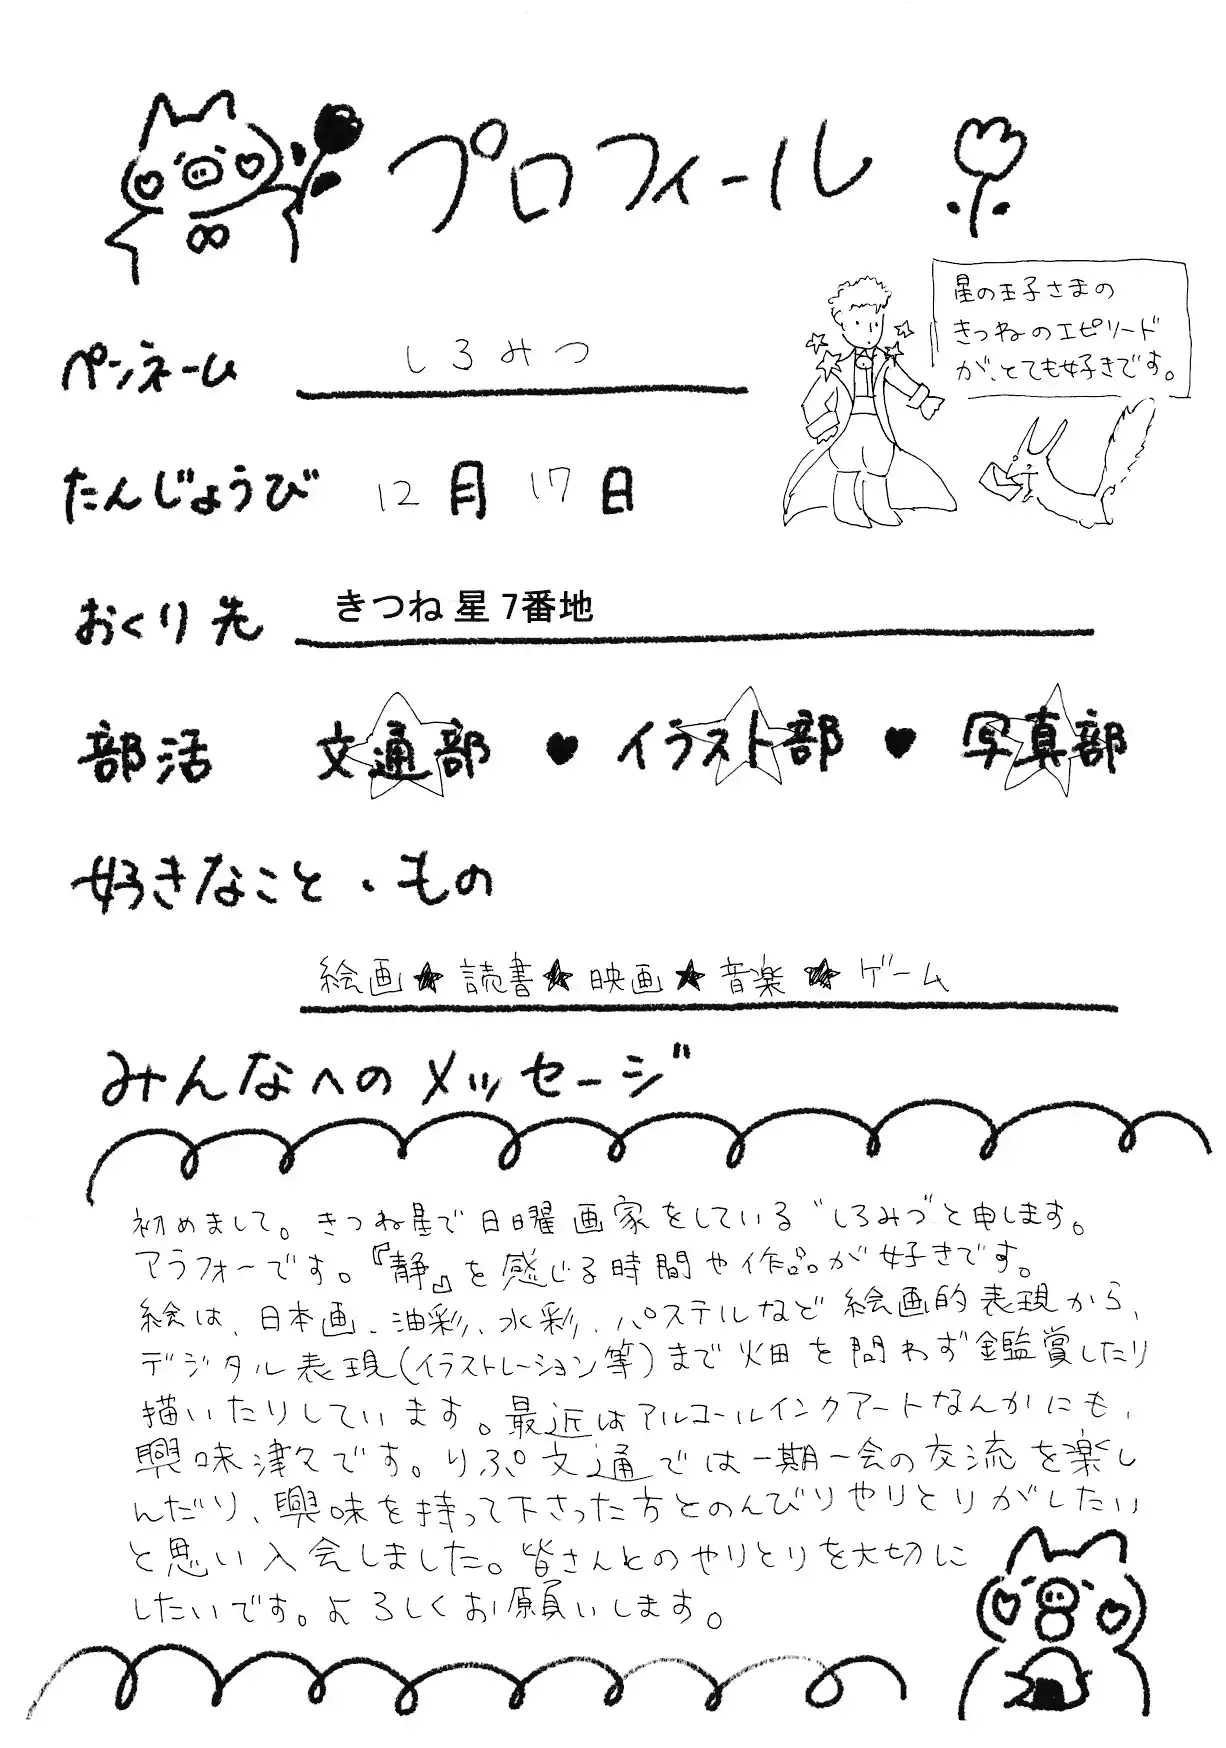 プロフィール
星の王子さまの
きつねのエピソード
が、とても好きです。
ペンネーム しろみつ
たんじょうび 12月17日
おくり先 きつね星7番地
部活 文通部 ♥ イラスト部 ♥ 写真部
好きなこと・もの
絵画★読書★映画★音楽★ゲーム
みんなへのメッセージ
初めまして。きつね星で日曜画家をしている"しろみつ"と申します。
アラフォーです。『静』を感じる時間や作品が好きです。
絵は、日本画、油彩、水彩、パステルなど絵画的表現から、
デジタル表現(イラストレーション等)まで畑を問わず鑑賞したり
描いたりしています。最近はアルコールインクアートなんかにも、
興味津々です。りぷ文通では一期一会の交流を楽し
んだり、興味を持って下さった方とのんびりやりとりがしたい
と思い入会しました。皆さんとのやりとりを大切に
したいです。よろしくお願いします。